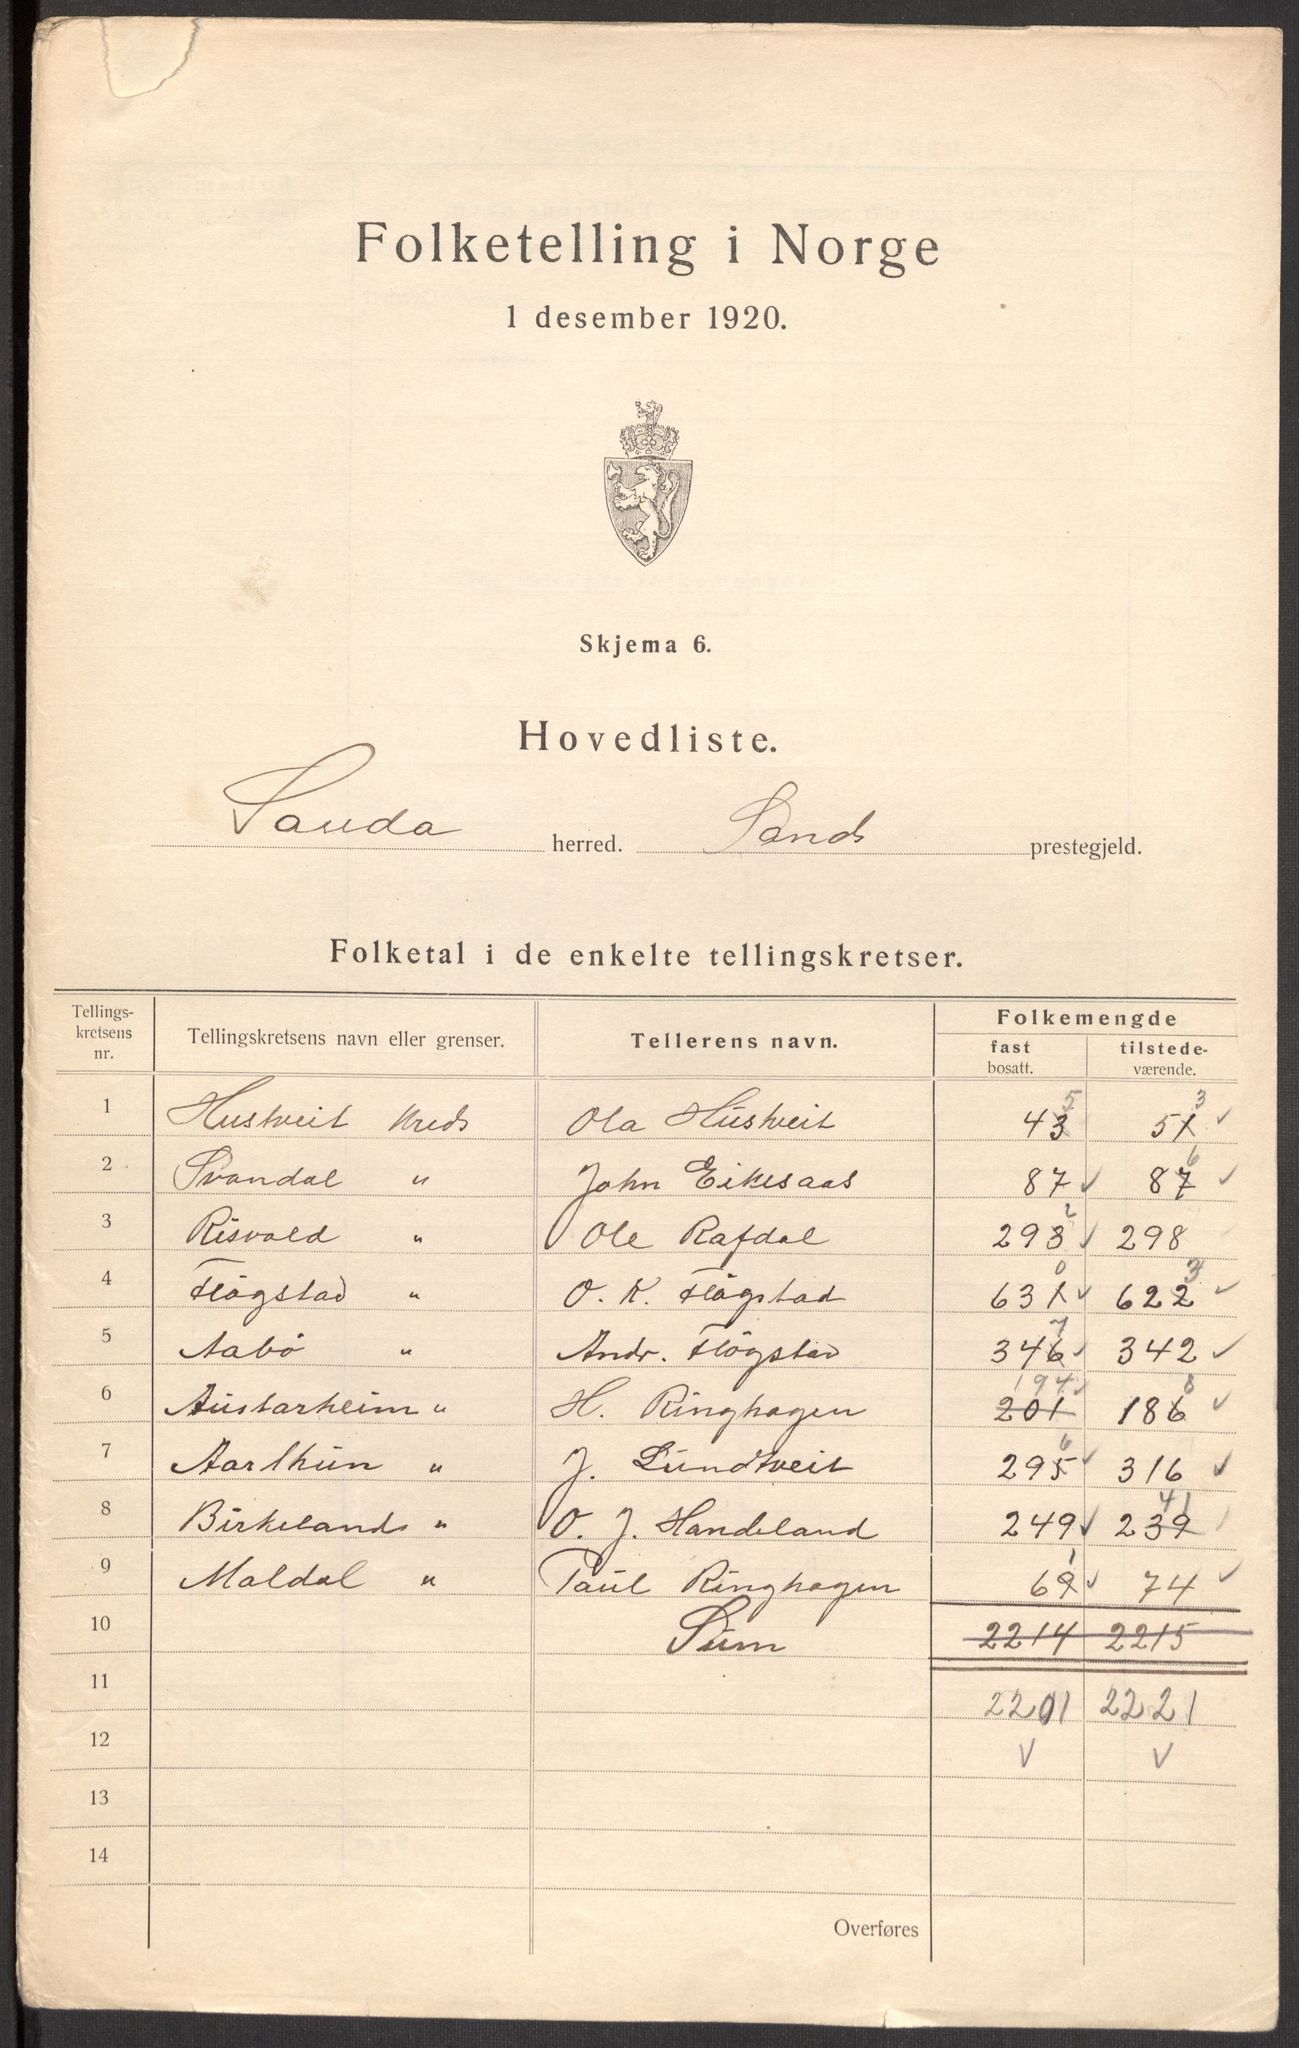 Folketelling i Norge
1 desember 1920.
Skjema 6.
Hovedliste.
Sauda herred. Sand prestegjeld.
Folketal i de enkelte tellingskretser.
Tellings-kretsens nr. Tellingskretsens navn eller grenser. Tellerens navn. Folkemengde
fast bosatt. tilstede-værende.
5 3
1 Hustveit Kreds Ola Hustveit 43 51 ✓
6
2 Svandal " John Eikesaas 87 ✓ 87 ✓
2
3 Risvold " Ole Rafdal 293 ✓ 298
0 3
4 Fløgstad " O. K. Fløgstad 631 ✓ 622 ✓
7
5 Aabø " Andr. Fløgstad 346 ✓ 342 ✓
194 ✓ 8
6 Austarheim " H. Ringhagen 201 186 ✓
6
7 Aarthun " J. Lundtveit 295 ✓ 316 ✓
41
8 Birkelands " O. J. Handeland 249 ✓ 239
1
9 Maldal " Paul Ringhagen 69 ✓ 74 ✓
10 Sum 2214 2215
11 2201 2221
12 V V
13
14
Overføres